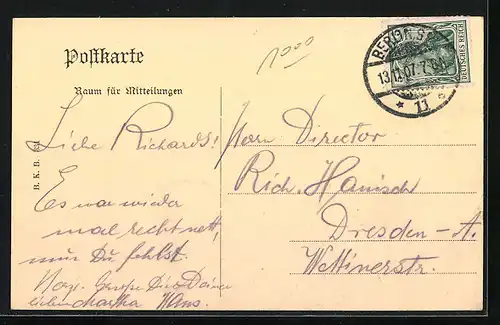 Postkarte
Raum für Mitteilungen
B. K. B.
1000
BERLIN S.
13.11.07.7-8N.
* 11
DEUTSCHES REICH
Liebe Richards!
Es war wieder
mal recht nett,
nur Du fehlst.
Dich Deine
Martha Hans.
Herrn Director
Rich. Hanisch
Dresden-A.
Wettinerstr.